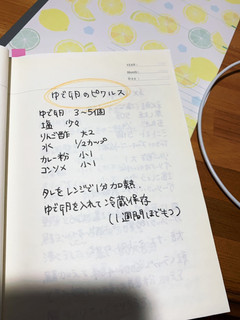 ゆで卵のピクルス
ゆで卵 3〜5個
塩 少々
りんご酢 大2
水 1/2カップ
カレー粉 小1
コンソメ 小1
タレをレンジで1分加熱.
ゆで卵を入れて冷蔵保存
(1週間ほどもつ)